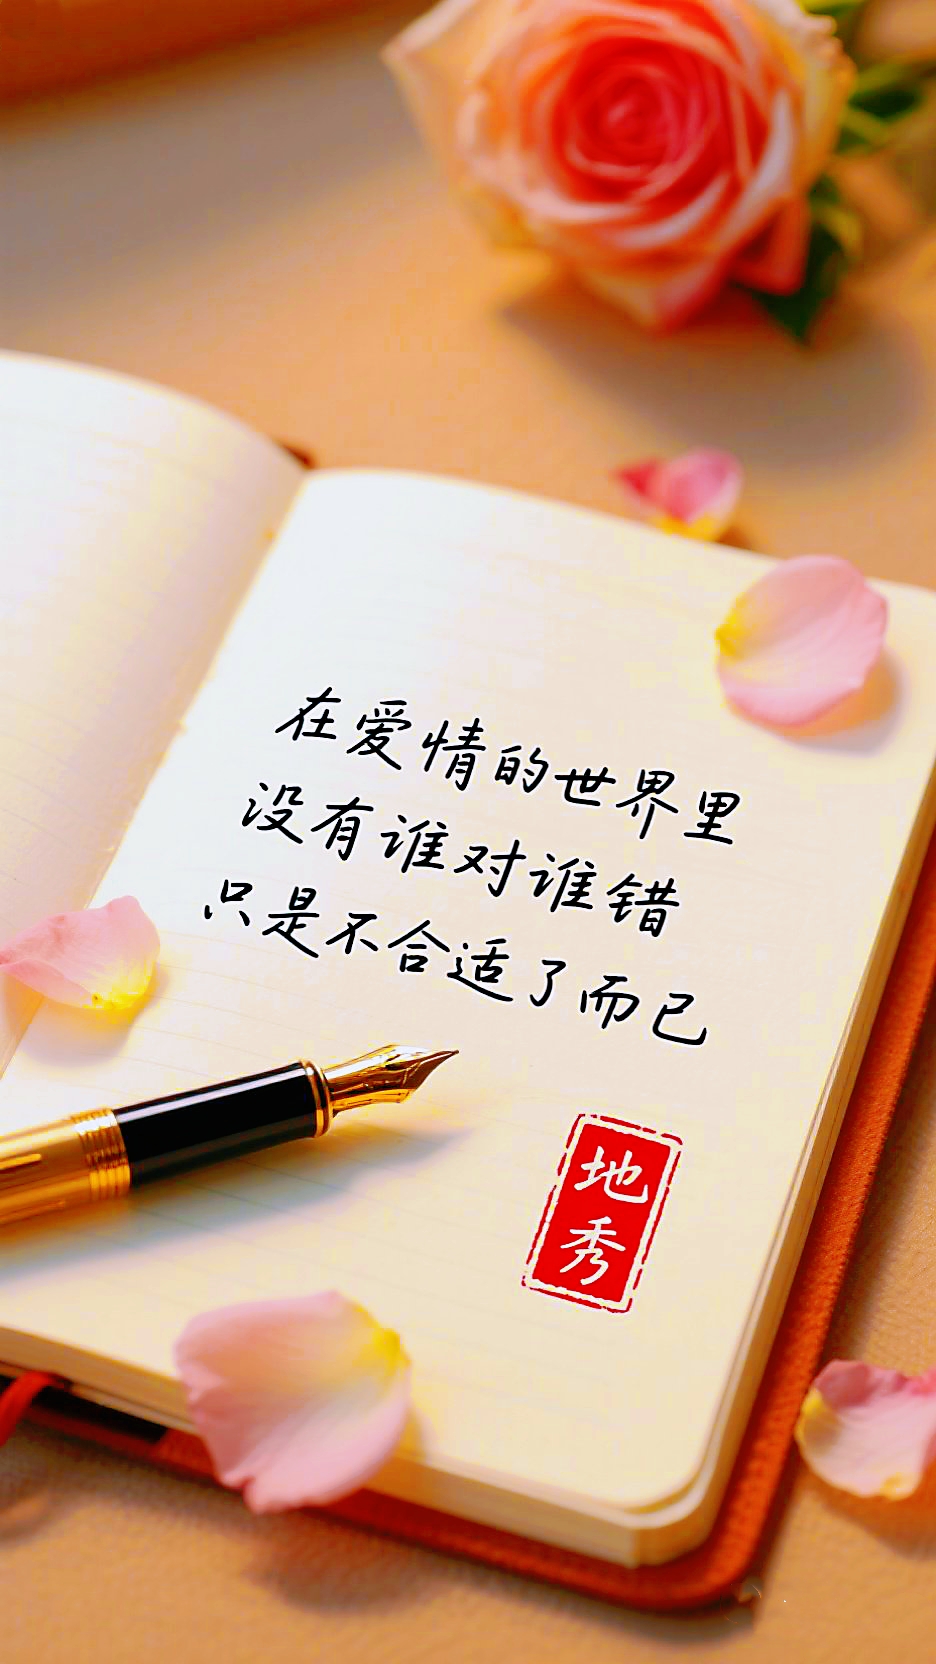 在爱情的世界里
没有谁对谁错
只是不合适了而已
地
秀